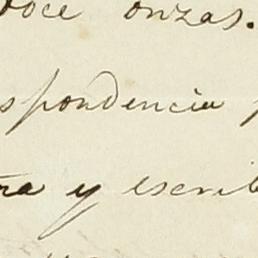 doce onzas.
spondencia
tra y escrib